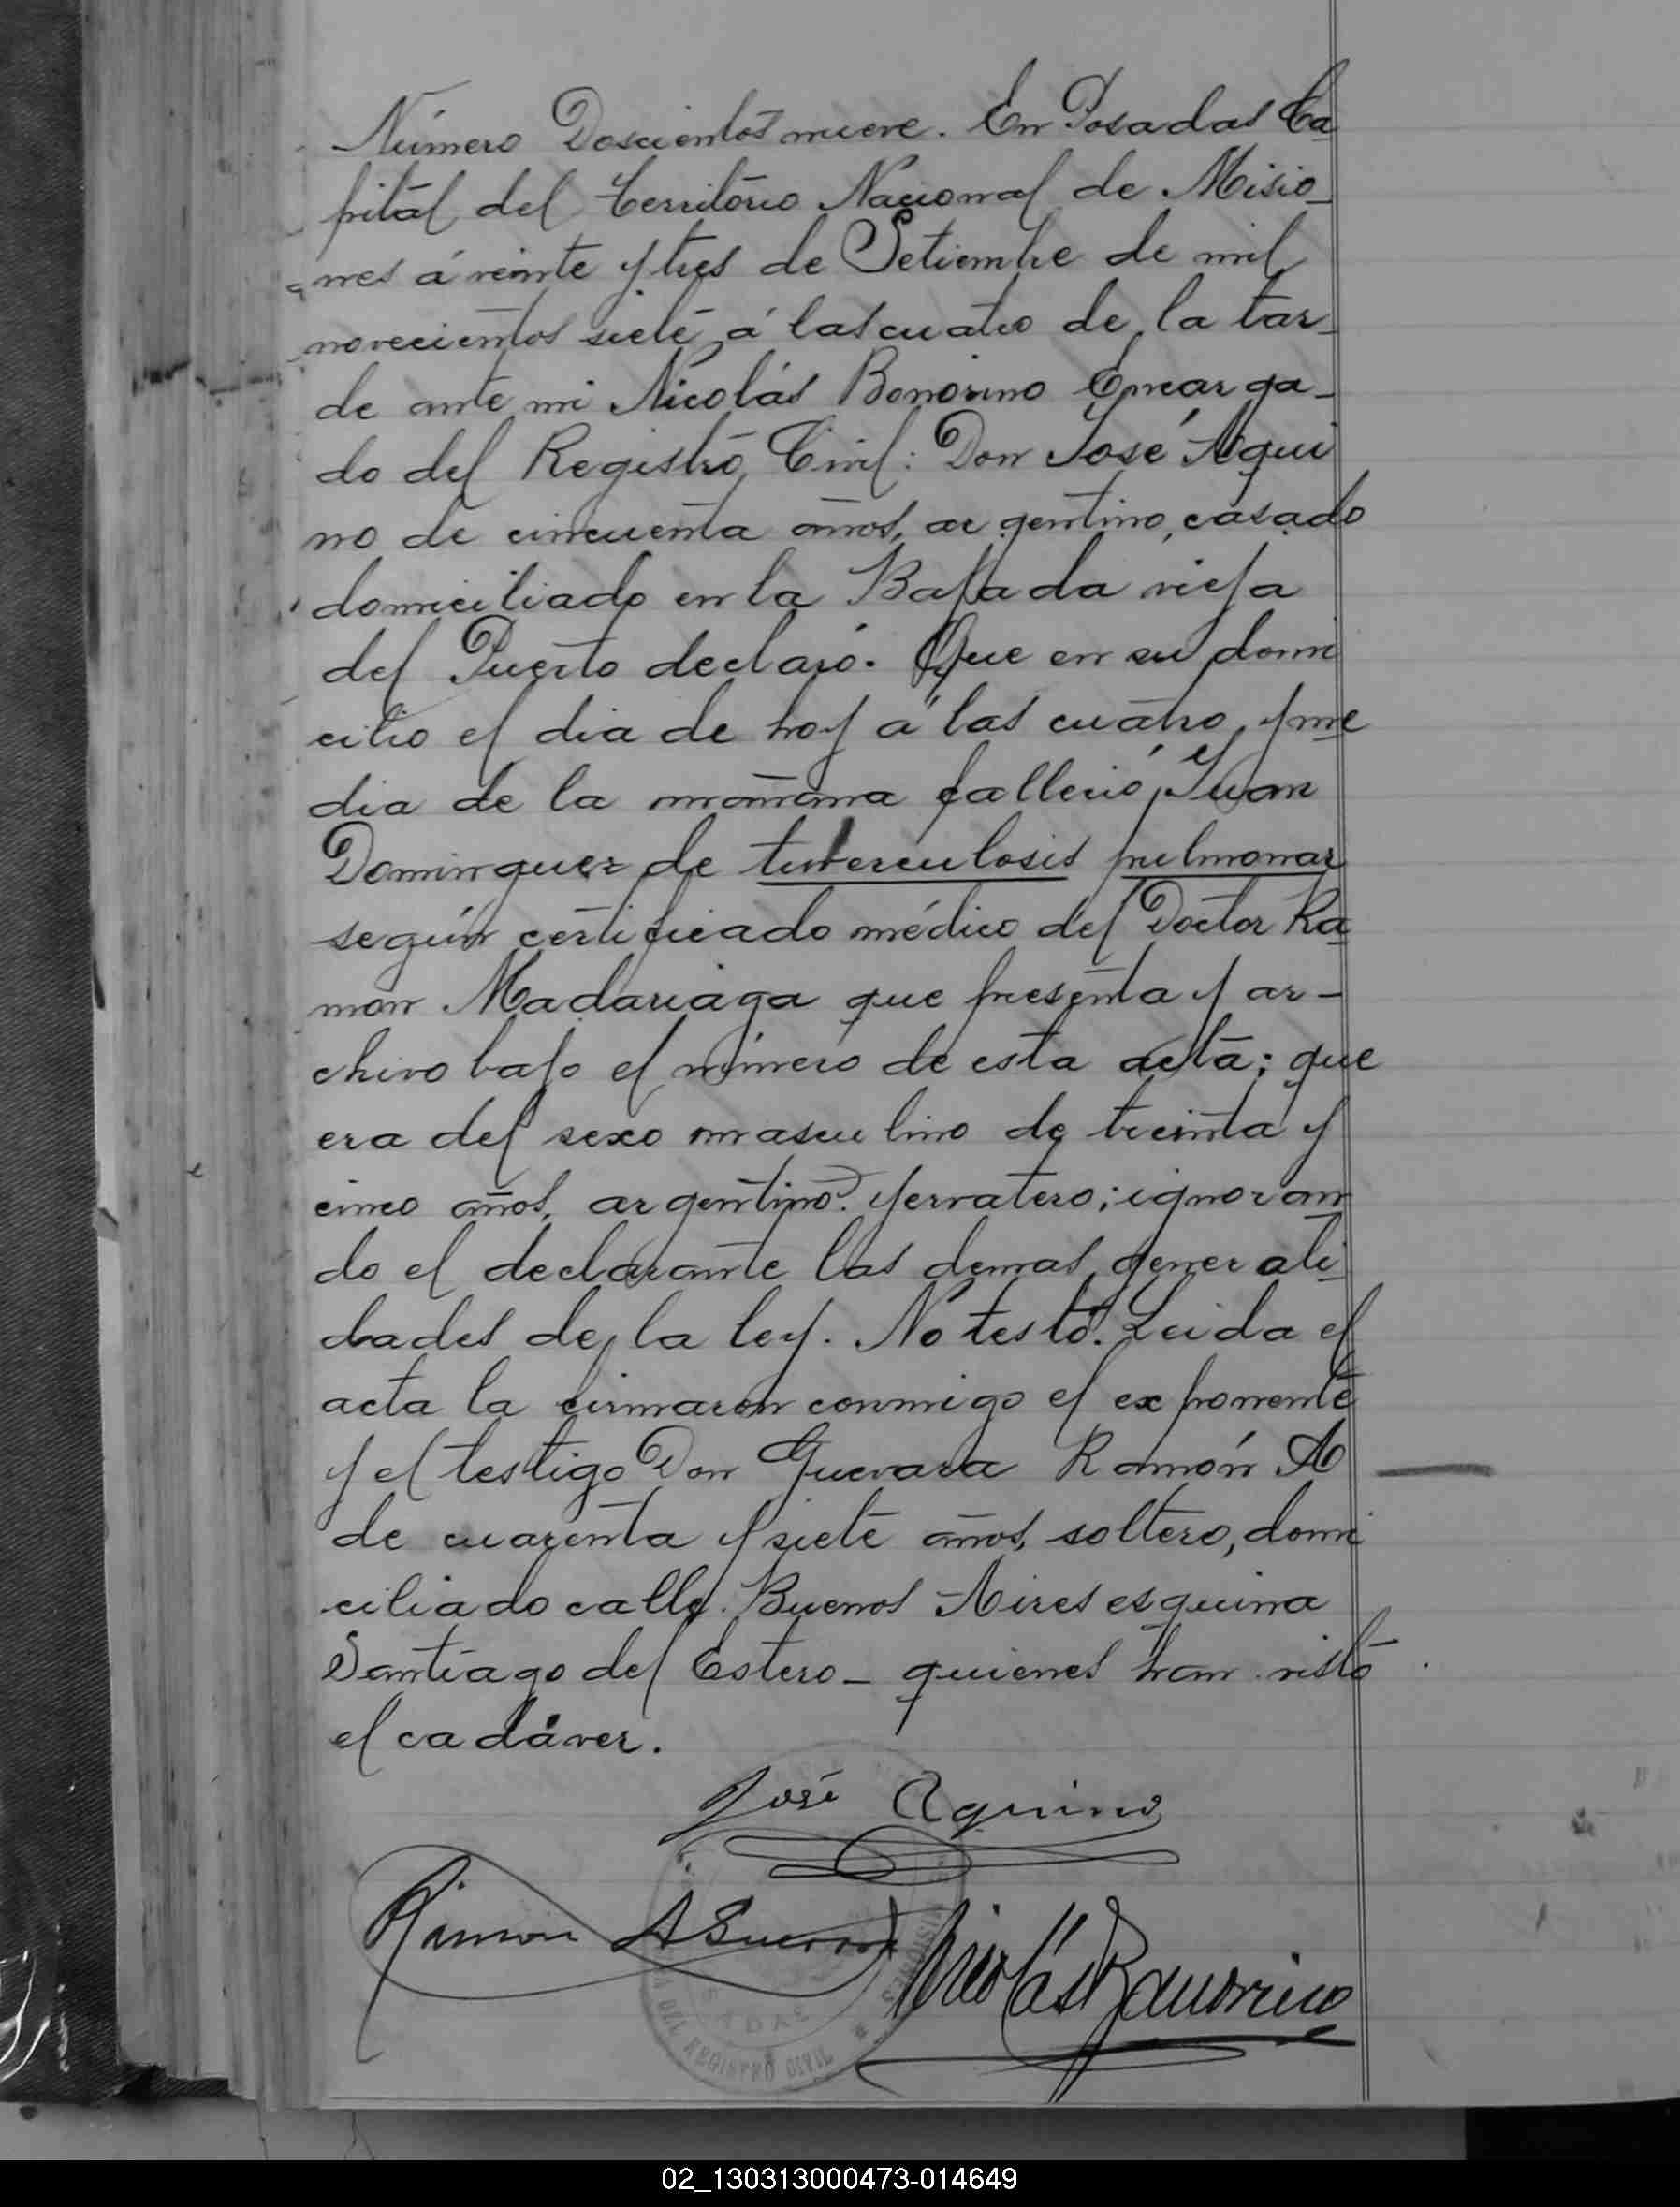 Número Doscientos nueve. En Posadas Ca
pital del Territorio Nacional de Misio_
nes á veinte y tres de Setiembre de mil
novecientos siete á las cuatro de la tar_
de ante mi Nicolás Bonorino Encarga_
do del Registro Civil: Don José Aqui
no de cincuenta años, argentino, casado
domiciliado en la Bajada vieja
del Puerto declaró. Que en su domi
cilio el dia de hoy a las cuatro y me
dia de la mañana falleció Juan
Dominguez de tuberculosis pulmonar
según certificado médico del Doctor Ra
mon Madariaga que presenta y ar-
chivo bajo el número de esta acta; que
era del sexo masculino de treinta y
cinco años, argentino. yervatero; ignoran
do el declarante las demas generali
dades de la ley. No testó. Leida el
acta la firmaron conmigo el exponente
y el testigo Don Guevara Ramón A
de cuarenta y siete años, soltero, domi
ciliado calle Buenos Aires esquina
Santiago del Estero_ quienes han visto
el cadáver.
José Aquino
Ramon A Guevara Nicolás Bonorino
REGISTRO CIVIL
02_130313000473-014649